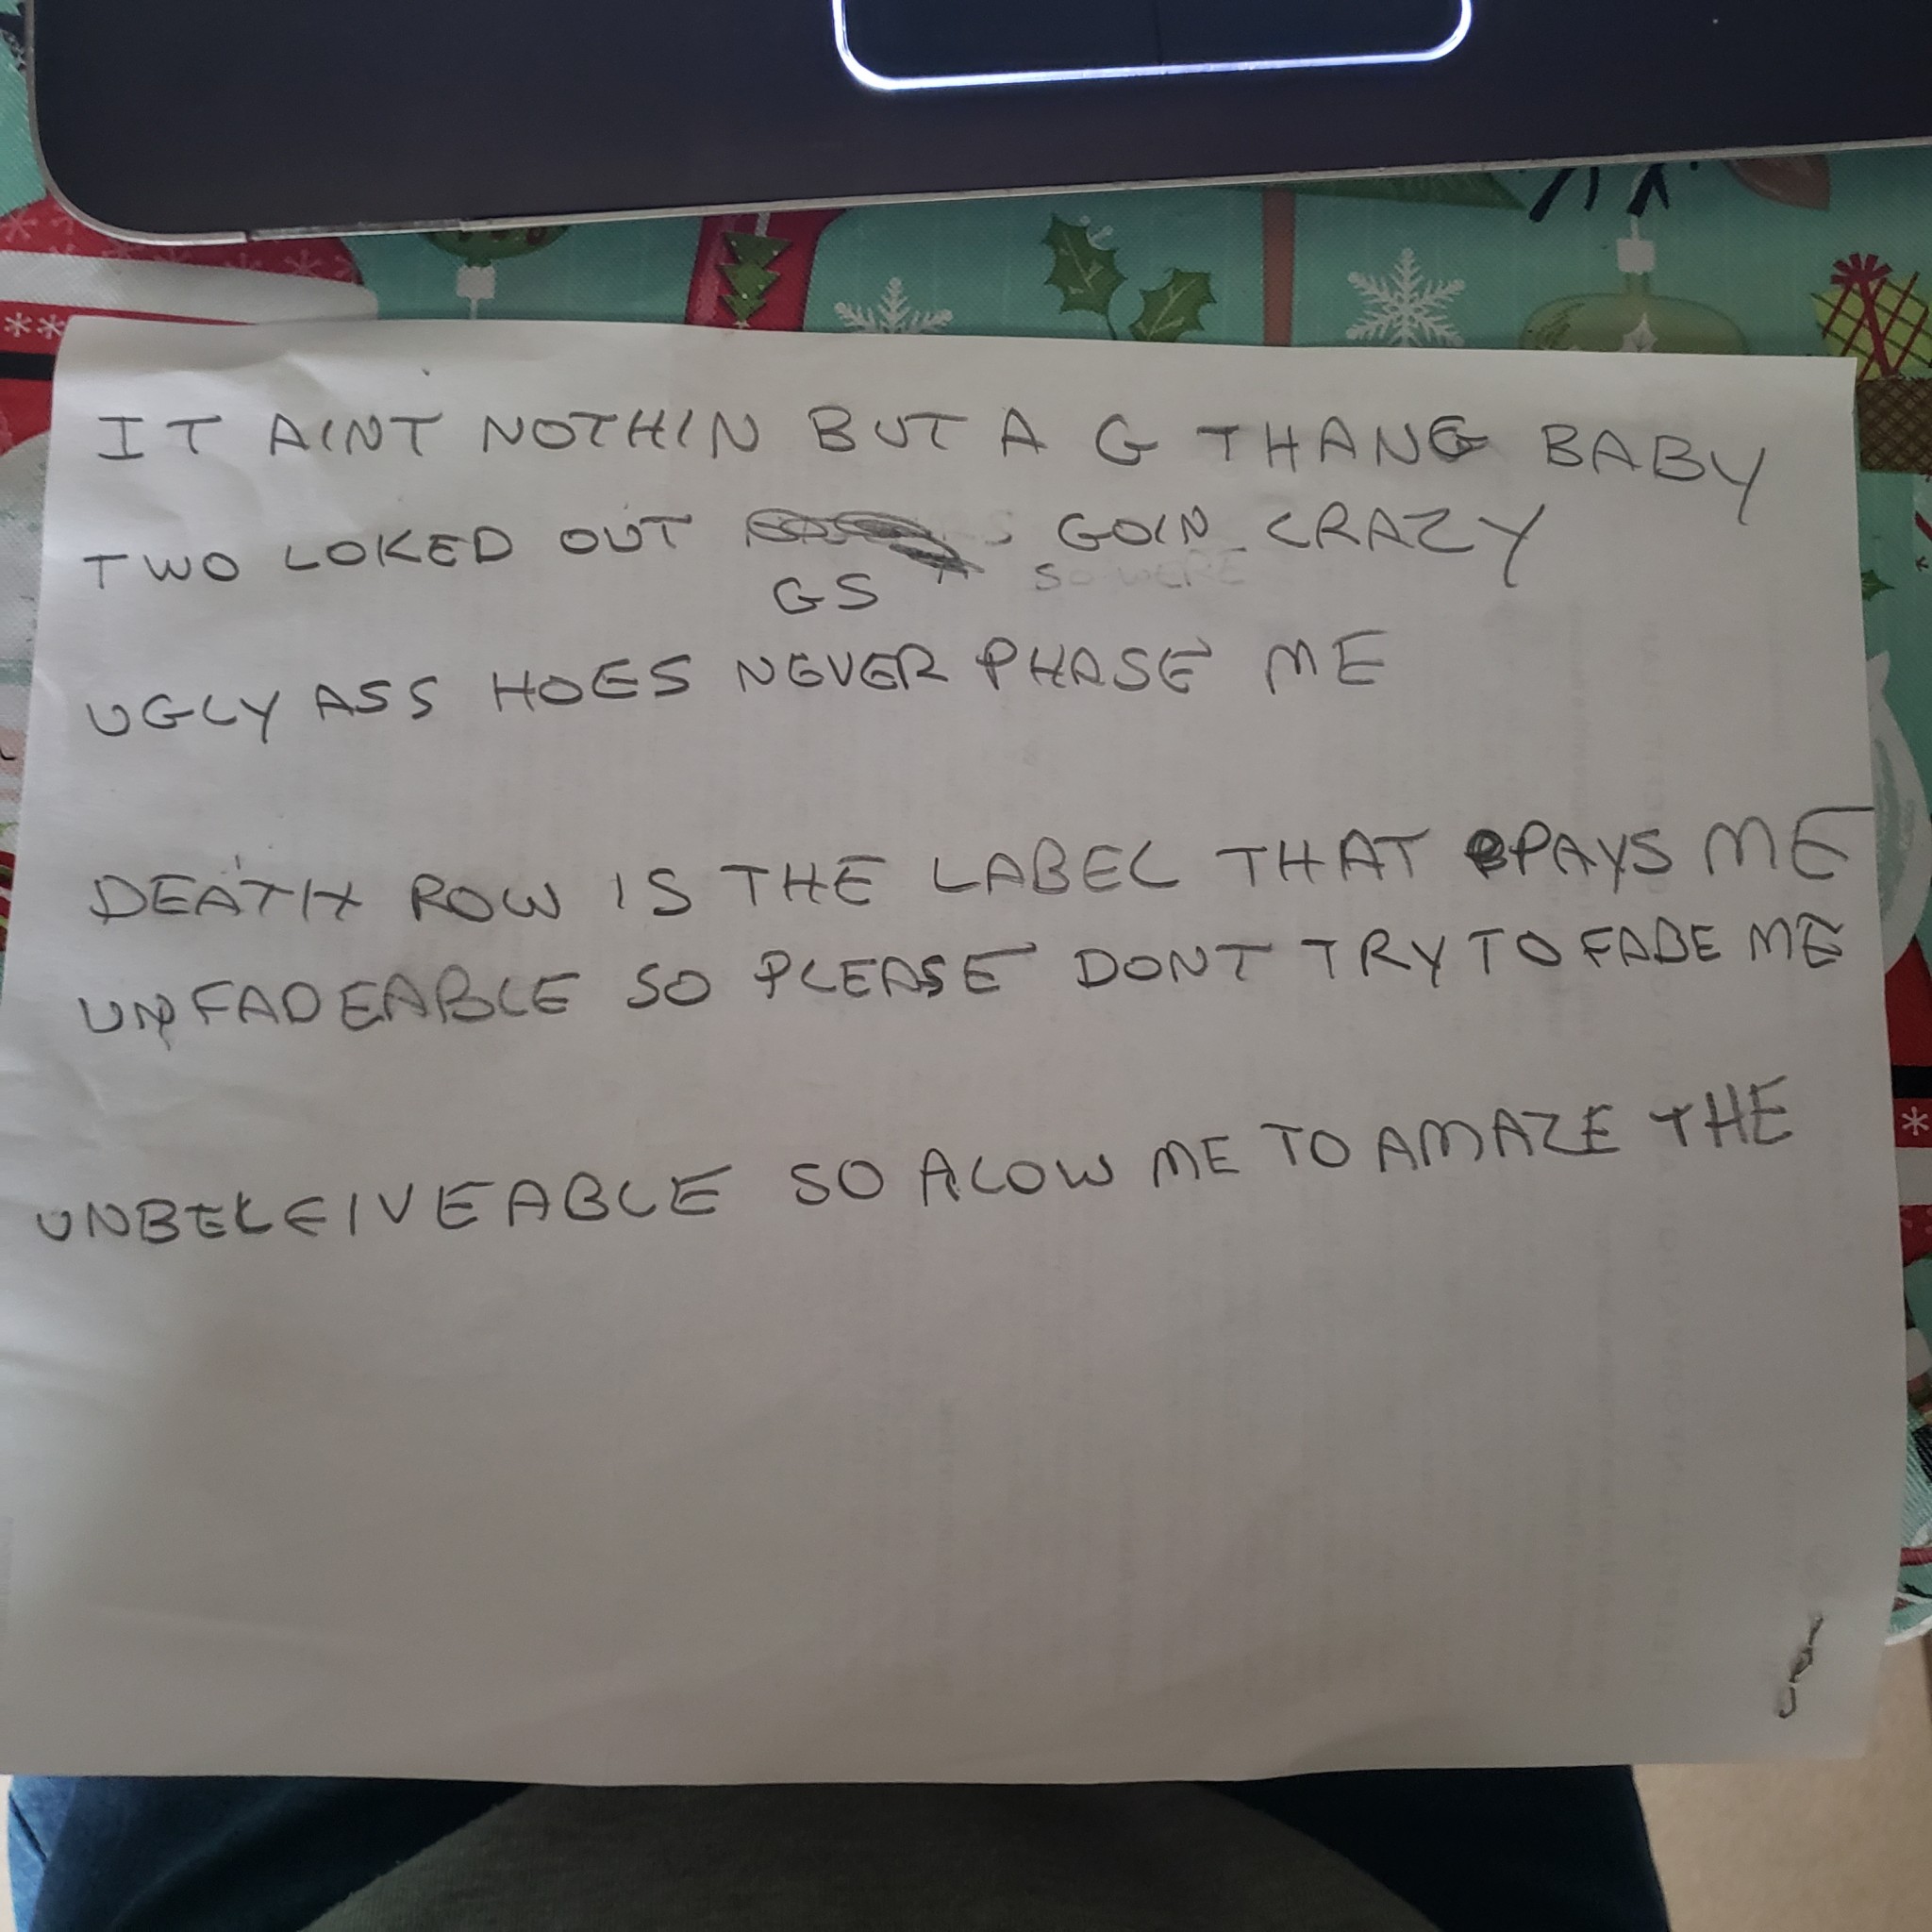 IT AINT NOTHIN BUT A G THANG BABY
TWO LOKED OUT GOIN CRAZY
GS SO WERE
UGLY ASS HOES NEVER PHASE ME
DEATH ROW IS THE LABEL THAT PAYS ME
UNFADEABLE SO PLEASE DONT TRY TO FADE ME
UNBELEIVEABLE SO ALOW ME TO AMAZE THE